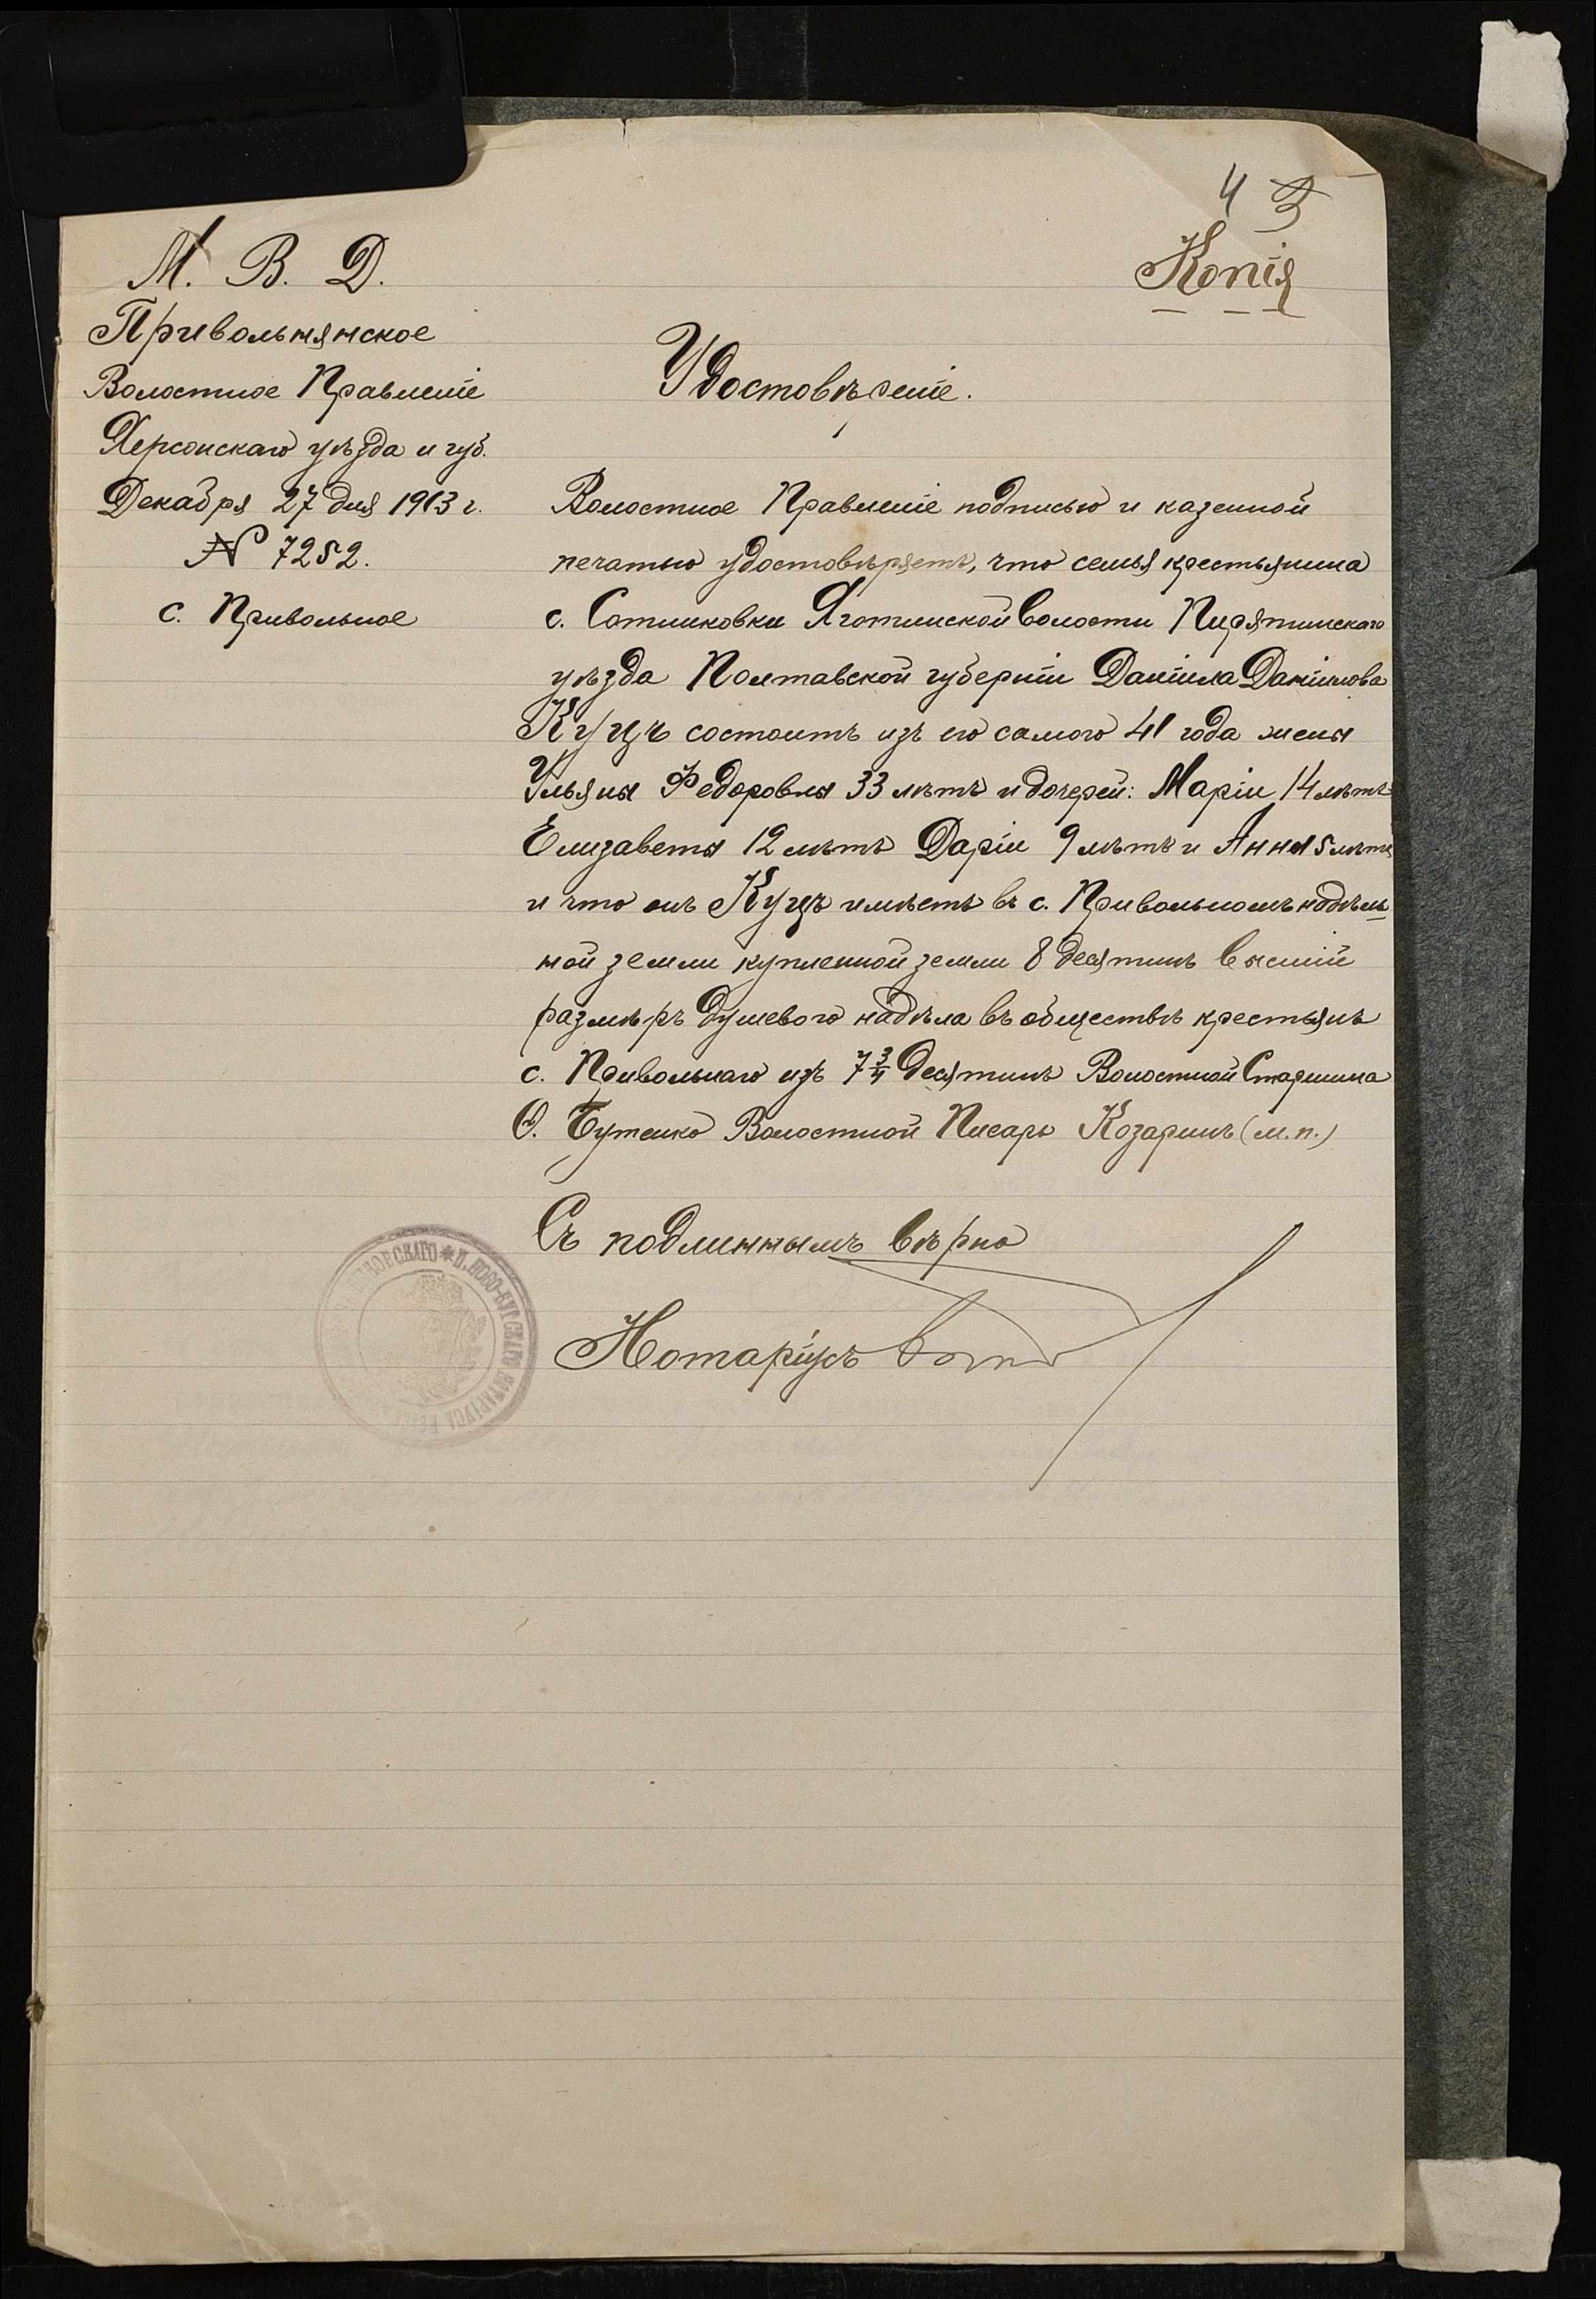 4 3
Копія
М. В. Д.
Привольнянское
Волостное Правленіе
Херсонскаго уѣзда и губ.
Декабря 27 дня 1913 г.
№ 7252.
с. Привольное
Удостовѣреніе.
Волостное Правленіе подписью и казенной
печатью удостовѣряетъ, что семья крестьянина
с. Сотниковки Яготинской волости Пирятинскаго
уѣзда Полтавской губерніи Даніила Даніилова
Куцъ состоитъ изъ его самого 41 года жены
Ульяны Федоровны 33 лѣтъ и дочерей: Маріи 14 лѣтъ
Елизаветы 12 лѣтъ Даріи 9 лѣтъ и Анны 5 лѣтъ
и что онъ Куцъ имѣетъ въ с. Привольномъ надѣль
ной земли купленной земли 8 десятинъ высшій
размѣръ душевого надѣла въ обществѣ крестьянъ
с. Привольнаго изъ 7 3/4 десятинъ Волостной Старшина
Ѳ. Бутенко Волостной Писарь Козаринъ (м.п.)
Съ подлиннымъ вѣрно
Нотаріусъ
П. НОВО-БУГСКАГО НОТАРІУСА